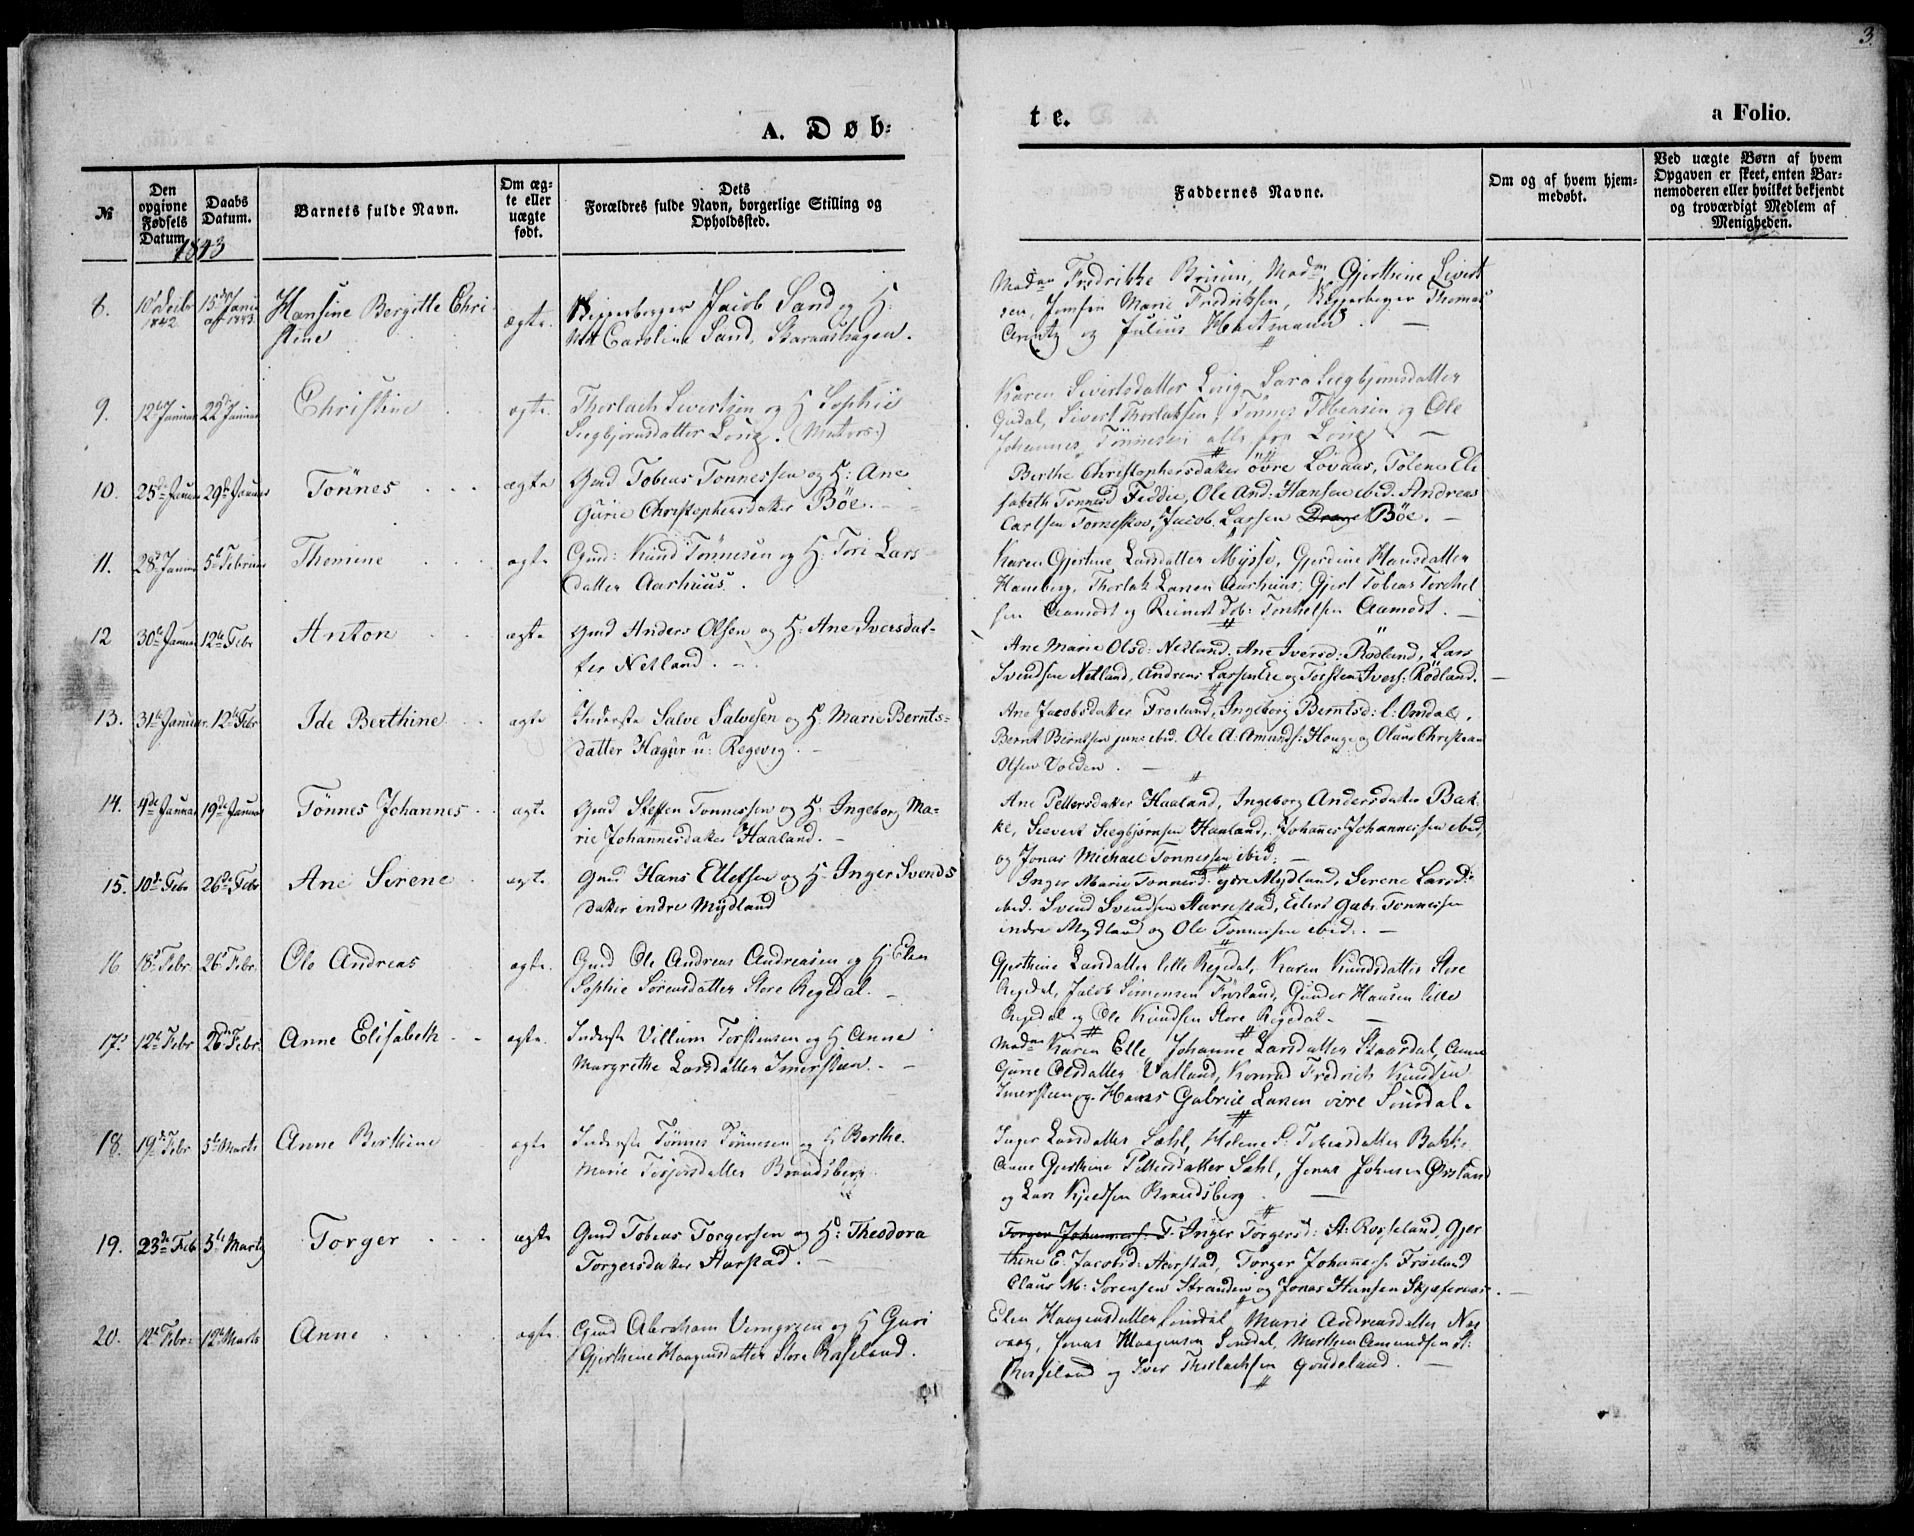 3.
A. Døb=
te.
a Folio.
№
Den opgivne Fødsels Datum.
Daabs Datum.
Barnets fulde Navn.
Om ægte eller uægte født.
Dets Forældres fulde Navn, borgerlige Stilling og Opholdssted.
Faddernes Navne.
Om og af hvem hjemmedøbt.
Ved uægte Børn af hvem Opgaven er skeet, enten Barnemoderen eller hvilket bekjendt og troværdigt Medlem af Menigheden.
1843
8. 1842 Hansine Bergitte Chri
stine ægte. Jacob Sand og H:
Caroline Sand,
Fredrikke Gjerthine Sivert
sen, Marie Fredriksen, Thomas
og Julius Hartmann.
9. 12te Januar 22de Januar Christine ægte. Thorlach Sivertsen og H Sophie
Siegbjørnsdatter Long.
Karen Sivertsdatter Long, Sara Siegbjørnsdatter
Sivert Thorlaksen, Tønnes Tobiasen og Ole
Johannes Tønnesen alle fra Long.
10. 25de Januar 29de Januar Tönnes ægte Gmd Tobias Tonnessen og H: Ane
Gurie Christophersdatter Böe.
Berthe Christophersdatter övre Lövaas, Tolene Eli
sabeth Tonnesd Feddie, Ole And: Hansen ibid. Andreas
Carlsen Torneskov, Jacob Larsen Drange Böe.
11. 28de Januar 5te Februar Thomine ægte Gmd: Knud Tønnesen og H: Tori Lars
datter Aarhuus.
Karen Gjertine Larsdatter Mysse, Gjerdine Hansdatter
Haneberg, Thorlak Larsen Aarhuus, Gjert Tobias Torkel
sen Aamodt og Reinert Tob: Torkelsen Aamodt.
12 30te Januar 12te Febr Anton ægte Gmd Anders Olsen og H: Ane Iversdat-
ter Netland.
Ane Marie Olsd: Netland. Ane Iversd: Rödland, Lars
Svendsen Netland, Andreas Larsen Lie og Torsten Ivers: Rödland.
13. 31te Januar. 12te Febr Ide Berthine ægte Inderste Salve Salvesen og H: Marie Bernts-
datter Hagur u: Regevig.
Ane Jacobsdatter Froeland, Ingeborg Berntsd: l: Omdal,
Bernt Berntsen juns ibid. Ole A: Amunds: Houge og Olaus Christian
Olsen Volden.
14. 4de Januar 19de Januar Tönnes Johannes ægte Gmd Steffen Tonnessen og H: Ingeborg Ma-
rie Johannesdatter Haaland.
Ane Pettersdatter Haaland, Ingeborg Andersdatter Bak-
ke, Sievert Siegbjørnsen Haaland, Johannes Johannessen ibid,
og Jonas Michael Tonnessen ibid:
15. 10de Febr 26de Febr Ane Serene ægte. Gmd Hans Ellefsen og H: Inger Svends
datter indre Mydland
Inger Marie Tonnesd: ydre Mydland, Serene Larsd:
ibid. Svend Svendsen Harrestad, Eilert Gabr. Tonnessen
indre Mydland og Ole Tonnessen ibid:
16 18de Febr 26de Febr. Ole Andreas ægte. Gmd Ole Andreas Andreasen og H: Elen
Sophie Sørensdatter Store Regedal.
Gjerthine Larsdatter lille Regedal, Karen Knudsdatter Store
Regedal, Jacob Simonsen Frösland, Gunder Hansen lille
Regedal og Ole Knudsen Store Regedal.
17. 12te Febr 26de Febr: Anne Elisabeth ægte. Inderste Villum Torstensen og H Anne
Margrethe Larsdatter Imersteen.
Karen Elle, Johanne Larsdatter Skaardal, Anne
Gurie Olsdatter Valland, Konrad Fredrich Knudsen
Imersteen og Hans Gabriel Larsen övre Sirdal.
18. 19de Febr 5te Marts Anne Berthine ægte Inderste Tönnes Tönnesen og H Berthe
Marie Torjersdatter Brandsberg
Inger Larsdatter Sæhl, Helene S: Tobiasdatter Bakke
Anne Gjerthine Pettersdatter Sæhl, Jonas Johnsen
og Lars Kjeldsen Brandsberg.
19. 23de Feb 5te Marts Torger ægte Gmd Tobias Torgersen og H: Theodora
Torgersdatter Harstad.
Torger Johannes: T. Inger Torgersd: St: Rosseland, Gjer
thine E. Jacobsd: Aarstad, Torger Johannes: Fröeland
Claus M: Sorensen Stranden og Jonas Hansen
20. 12te Febr: 12te Marts Anne ægte. Gmd Abraham og H Guri
Gjerthine Haagensdatter Store Rosseland.
Elen Haagensdatter Marie Andreasdatter
Jonas Haagensen Morthen Amundsen St:
Rosseland og Iver Thorlachsen Goudeland.